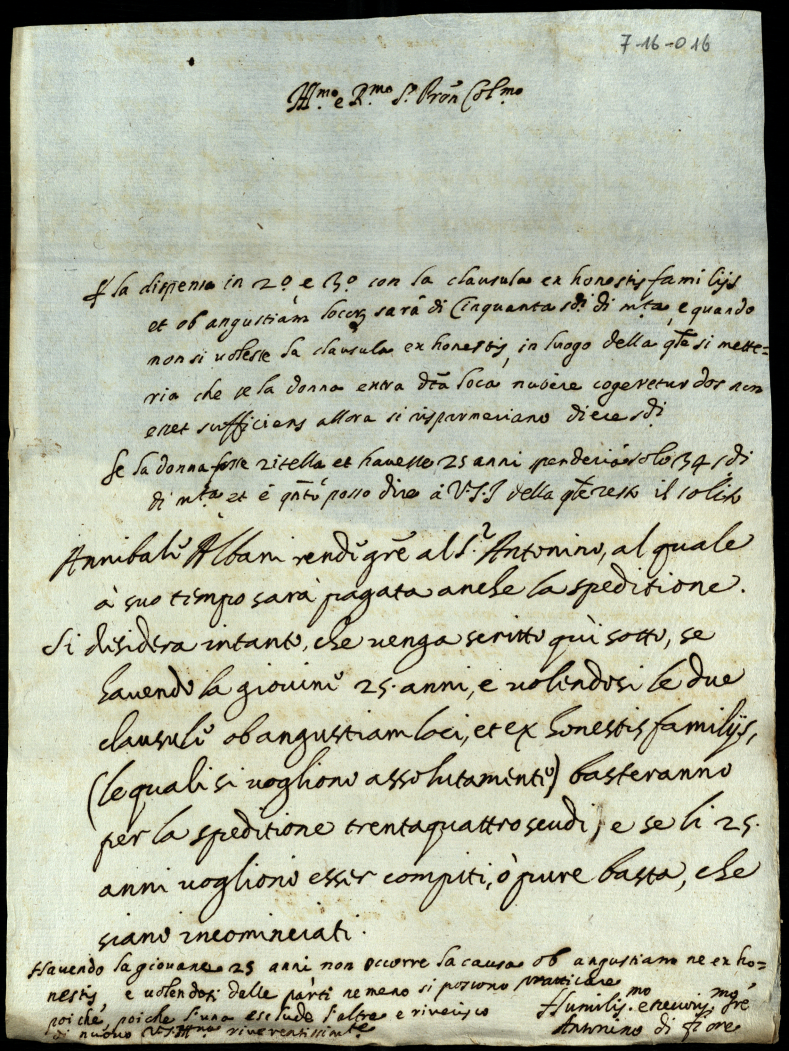 7-16-016
Ill.mo e R.mo S.r Pron Col.mo
P la dispensa in 2.o e 3.o con la clausula ex honestis familijs
et ob angustiam locor sarà di Cinquanta s.di di m.ta, e quando
non si volesse la clausula ex honestis, in luogo della q.le si mette=
ria che se la donna extra d.ta loca nubere cogeretur dos non
esset sufficiens allora si risparmeriano diece s.di
Se la donna fosse zitella et havesse 25 anni spenderia solo 34 s.di
di m.ta et è q.nto posso dire à V.S.I della q.le resto il solito
Annibale Albani rende gr.e al S.r Antonino, al quale
à suo tempo sarà pagata anche la speditione.
Si desidera intanto, che venga scritto quì sotto, se
havendo la giovine 25. anni, e volendosi le due
clausule ob angustiam loci, et ex honestis familijs,
(le quali si vogliono assolutamente) basteranno
per la speditione trentaquattro scudi, e se li 25.
anni vogliono esser compiti, ò pure basta, che
siano incominciati.
Havendo la giovane 25 anni non occorre la causa ob angustiam ne ex ho=
nestis, e volendosi delle parti nemeno si possono pratticare
poiché, poiche l'una esclude l'altra e riverisco
di nuovo V.S. Ill.ma riverentissim.te
Humiliss.mo e
Antonino di Fiore